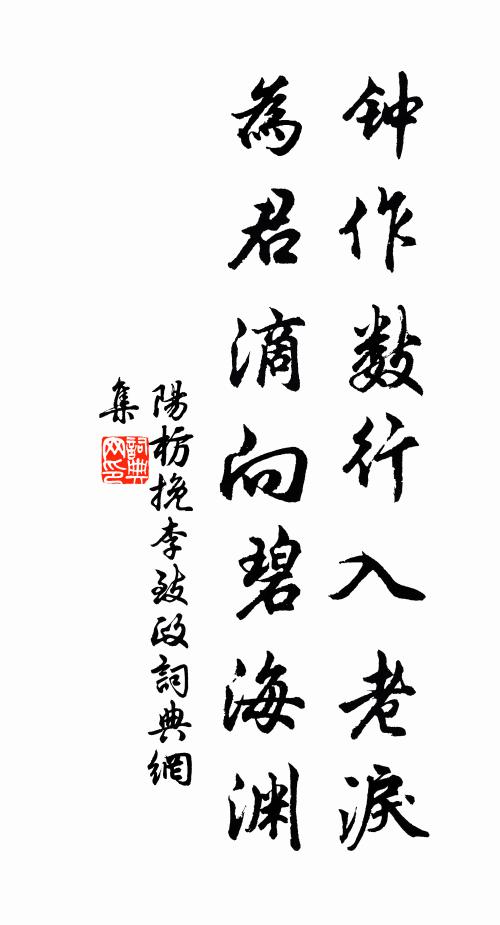 钟作数行入老淚
為君滴向碧海渊
陽枋挽李致政詞典網
集
詞典
网印